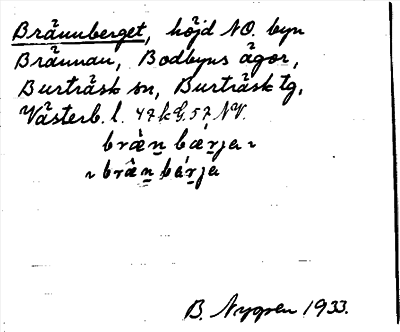 Brännberget, höjd NO. byn
Brännan, Bodbyns ägor,
Burträsk sn, Burträsk tg,
Västerb. l. 47 k G. 57 NV.
B. Nygren 1933.